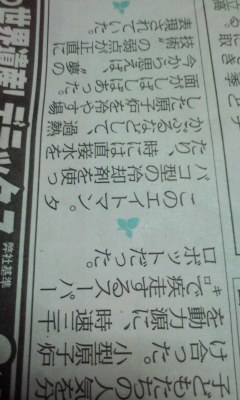 子どもたちの人気を分
け合った。小型原子炉
を動力源に、時速三千
キロで疾走するスーパー
ロボットだった。
このエイトマン、タ
バコ型の冷却剤を使っ
たり、時には直接水を
かぶるなどして、過熱
した原子炉を冷やす場
面がしばしばあった。
今から思えば、“夢の
技術”の弱点が正直に
表現されていた。
世界遺産 デラックス
弊社基準